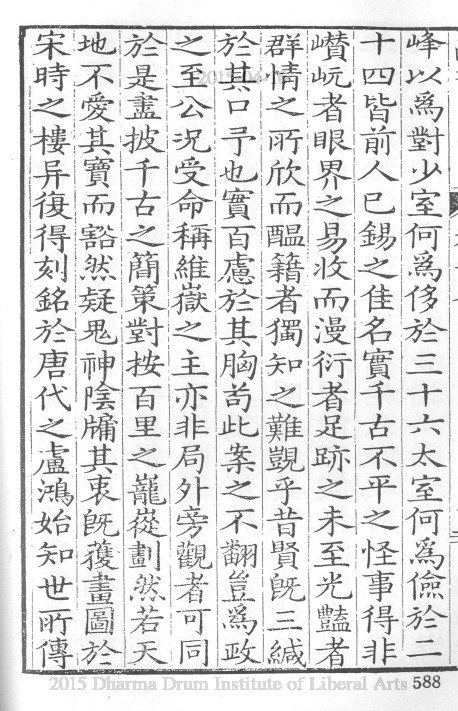 峰以爲對少室何爲侈於三十六太室何爲儉於二
十四皆前人已錫之佳名實千古不平之怪事得非
巑岏者眼界之易收而漫衍者足跡之未至光豔者
群情之所欣而醞籍者獨知之難覬乎昔賢旣三緘
於其口予也實百慮於其胸苟此案之不翻豈爲政
之至公况受命稱維嶽之主亦非局外旁觀者可同
於是盡披千古之簡策對按百里之巃嵸劃然若天
地不愛其寶而豁然疑鬼神陰牖其衷旣獲畫圖於
宋時之樓异復得刻銘於唐代之盧鴻始知世所傳
2015 Dharma Drum Institute of Liberal Arts
588